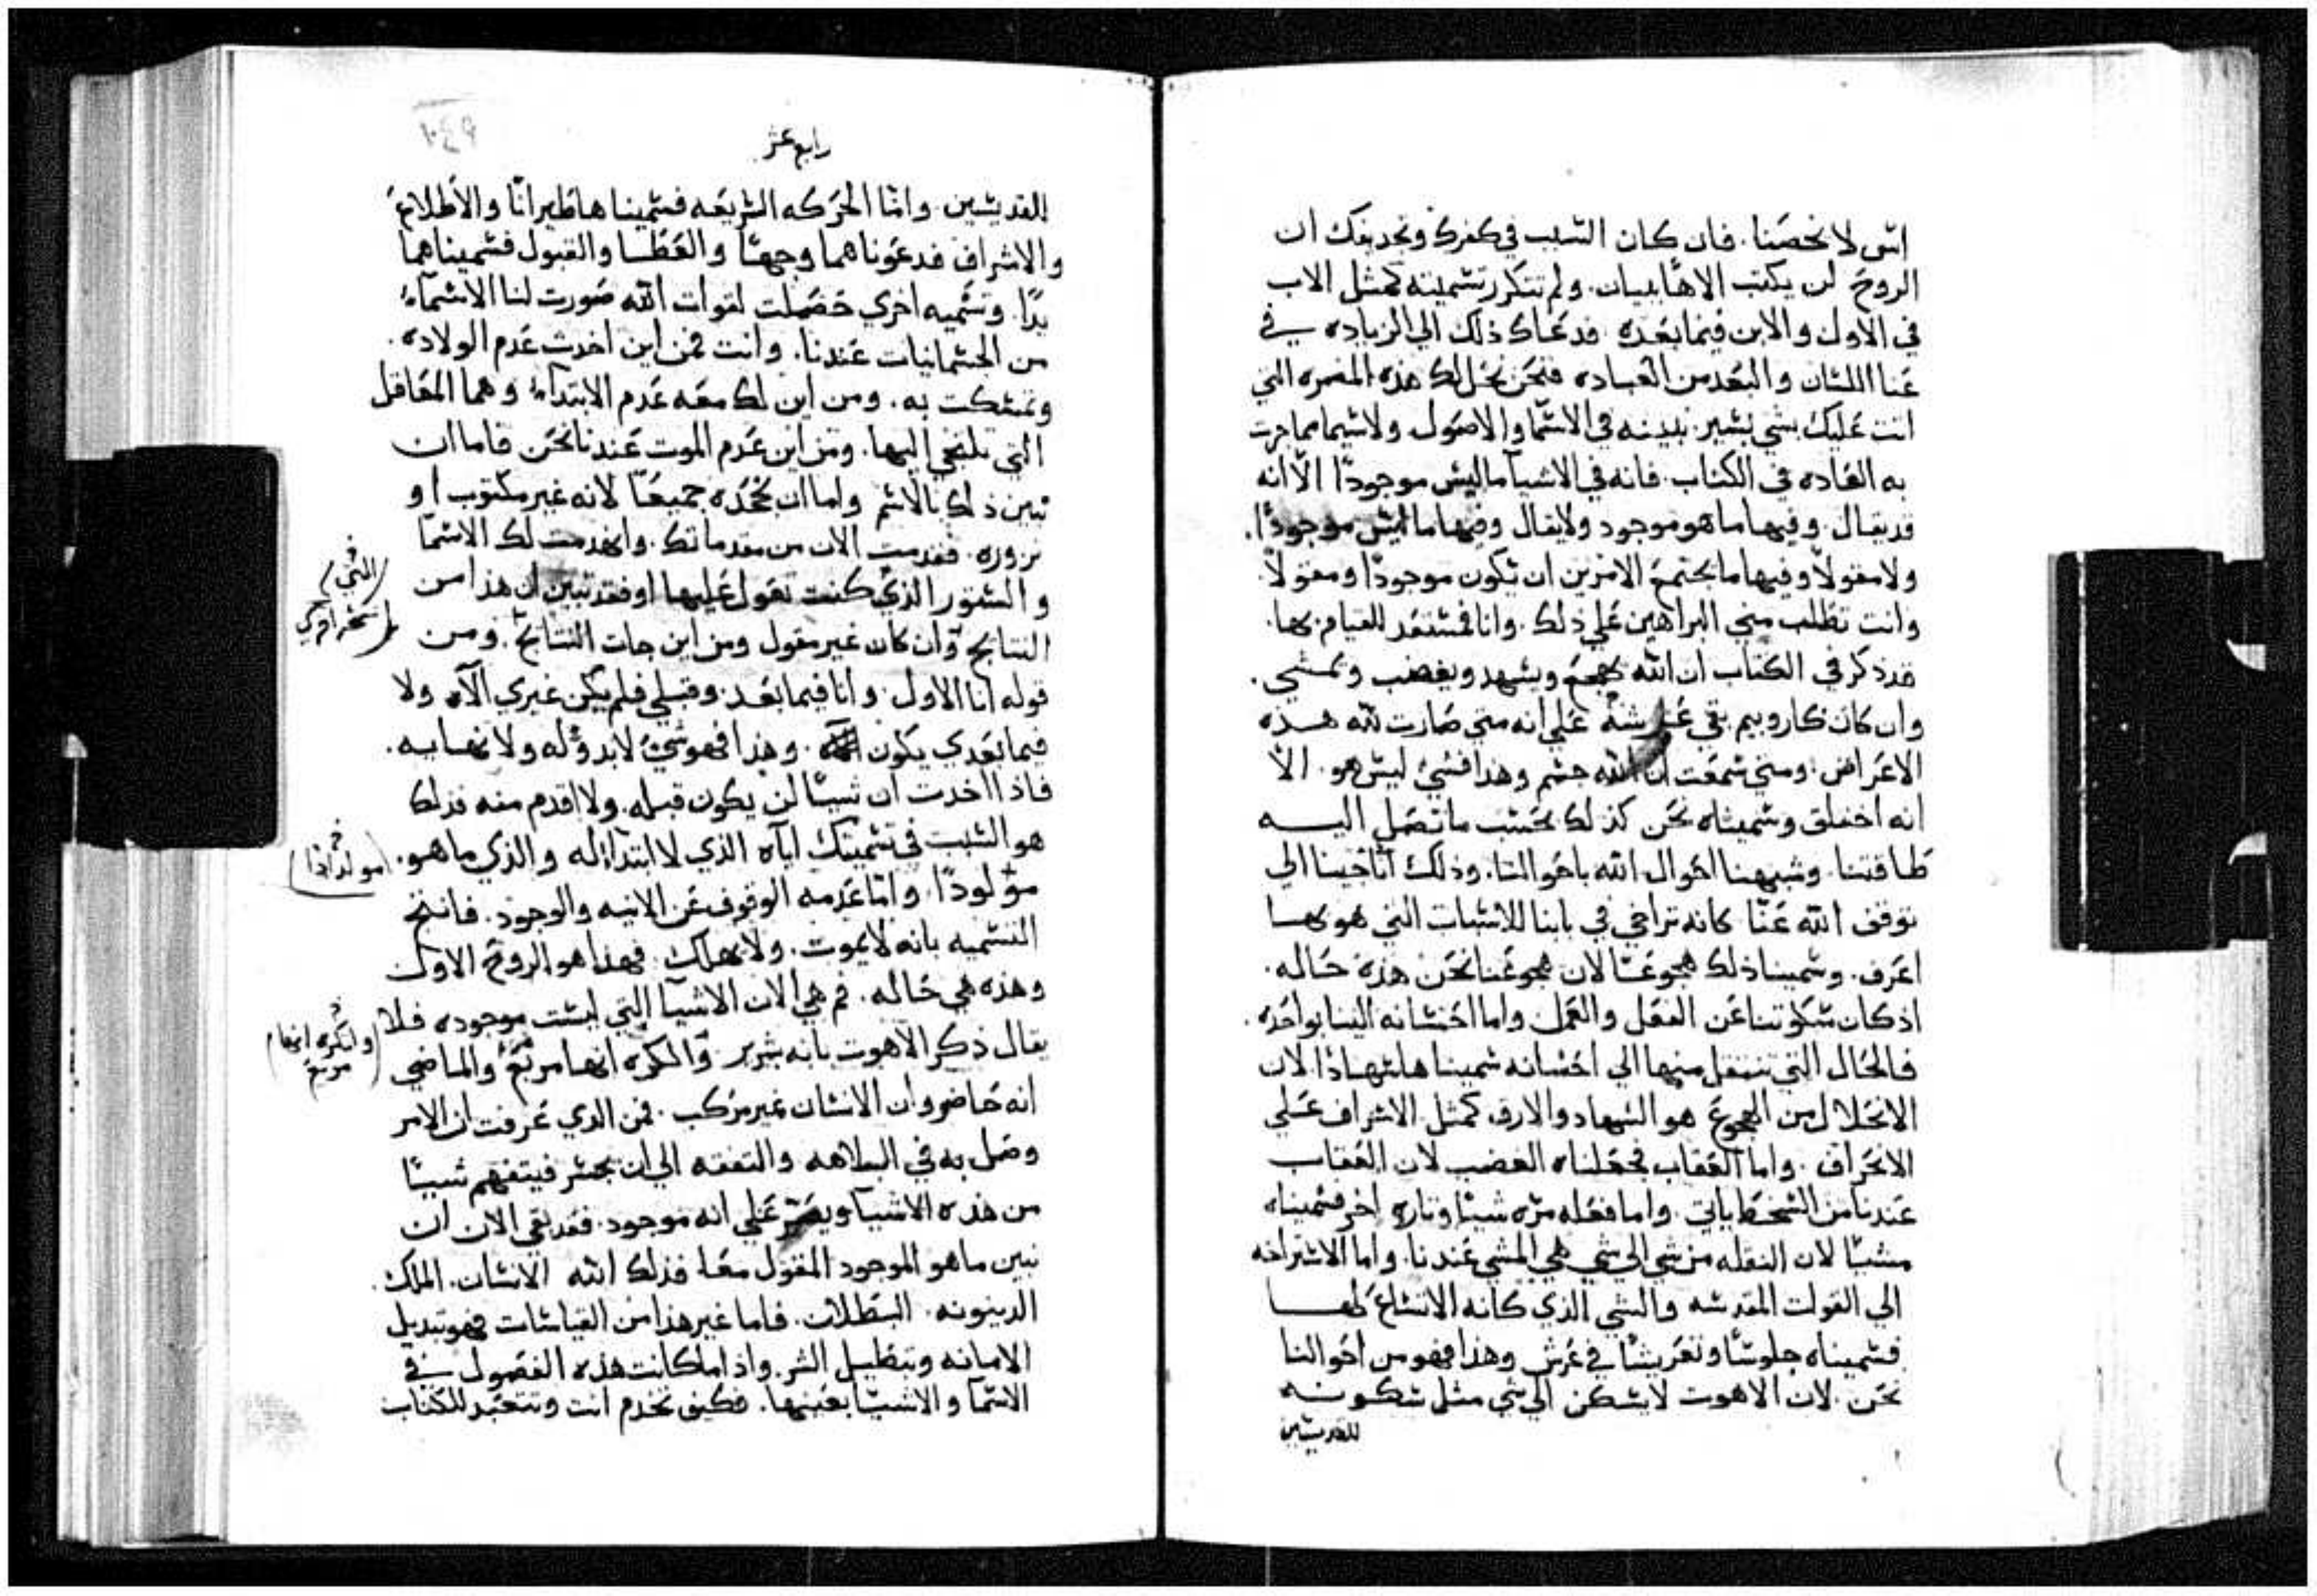 اش لا نحصنا. فان كان السبب في كفرك وتجديفك ان
الروح لن يكتب الاهًا ببيان. ولم تتكرر تسميته كمثل الاب
في الاول والابن فيما بعده. فدعاك ذلك الي الزياده في
عنا اللسان والبعد من العباده فنحن نحل لك هذه المضره التي
انت عليك بشي يسير نبينه في الاسما والاصول ولا سيما مما جرت
به العاده في الكتاب. فانه في الاشيا ما ليس موجودًا الّا انه
قد يقال. وفيها ما هو موجود ولا يقال وفيها ما ليس موجودًا.
ولا مقولاً وفيها ما يجتمع الامرين ان يكون موجودًا ومقولاً.
وانت تطلب مني البراهين علي ذلك. وانا فمستعد للقيام بها.
قد ذكر في الكتاب ان الله يهجع ويشهد ويغضب ويمشي.
وان كان كاروبيم بقي عرشه علي انه متي صارت لله هذه
الاعراض. ومتي سمعت ان الله جسم وهذا فشي ليس هو. الّا
انه اختلق وسميناه نحن كذلك بحسب ما تصل اليه
طاقتنا. وشبهنا احوال الله باحوالنا. وذلك انا جينا الي
توقف الله عنّا كانه تراخي في بابنا للاسباب التي هو بها
اعرف. وسمينا ذلك هجوعًا لان هجوعنا نحن هذه حاله.
اذ كان سكوتنا عن الفعل والعمل واما احسانه الينا بواحده.
فالحال التي تنتقل منها الي احسانه سمينا هاسهادًا. لان
الانحلال من الهجوع هو السهاد والارق كمثل الاشراف علي
الانحراف. واما العقاب فجعلناه الغضب لان العقاب
عندنا من السخط ياتي. واما فعله مره شيًا وتاره اخر فسميناه
مشيًا لان النقله من شي الي شي هي المشي عندنا. واما الاستراحه
الي القوات المقدسه والشي الذي كانه الاتساع لها
فسميناه جلوسًا وتعريشًا في عرش وهذا فهو من احوالنا
نحن. لان الاهوت لا يسكن الي شي مثل سكونه
للقديسين
رابع عشر
القديسين. وامّا الحركه السريعه فسميناها طيرانًا والاطلاع
والاشراف فدعوناهما وجهًا والعطا والقبول فسميناهما
يدًا. وتسميه اخري حصلت لقوات الله صورت لنا الاسمآء
من الجسمانيات عندنا. وانت فمن اين اخدت عدم الولاده.
وتمسكت به. ومن اين لك معه عدم الابتدآء وهما المعاقل
التي تلتجي اليها. ومن اين عدم الموت عندنا نحن فاما ان
تبين ذلك بالاسم واما ان نجحده جميعًا لانه غير مكتوب او
نزوره. فقد مت الان من مقدماتك. وانهدمت لك الاسما
والستور الذي كنت تعول عليها او فقد تبين ان هذا من
النتايج وان كان غير مقول ومن اين جات النتايج. ومن
قوله انا الاول. وانا فيما بعد. وقبلي فلم يكن غيري الآه ولا
فيما بعدي يكون. وهذا فهو شي لا بدو له ولا نهايه.
فاذا اخدت ان شيًا لن يكون قبله. ولا اقدم منه فذلك
هو السبب في تسميتك اياه الذي لا ابتدا له والذي ما هو.
مولودًا. وامّا عدمه الوقوف عن الانيه والوجود. فانتج
التسميه بانه لا يموت. ولا يهلك. فهذا هو الروح الاول
وهذه هي حاله. ثم هي الان الاشيا التي ليست موجوده فلا
يقال ذكر الاهوت بانه شرير والكره انها مربع والماضي
انه حاضر وان الانسان غير مركب. فمن الذي عرفت ان الامر
وصل به في البلاهه والتفته الي ان يجسر فيتفهم شيًا
من هذه الاشيا ويصر علي انه موجود. فقد بقي الان ان
نبين ما هو الموجود المقول معًا فذلك الله الانسان. الملاك.
الدينونه. البطلان. فاما غير هذا من القياسات فهو تبديل
الامانه وتبطيل السر. واذا ما كانت هذه الفصول في
الاسما والاشيا بعينها. فكيف تخدم انت وتتعبد للكتاب